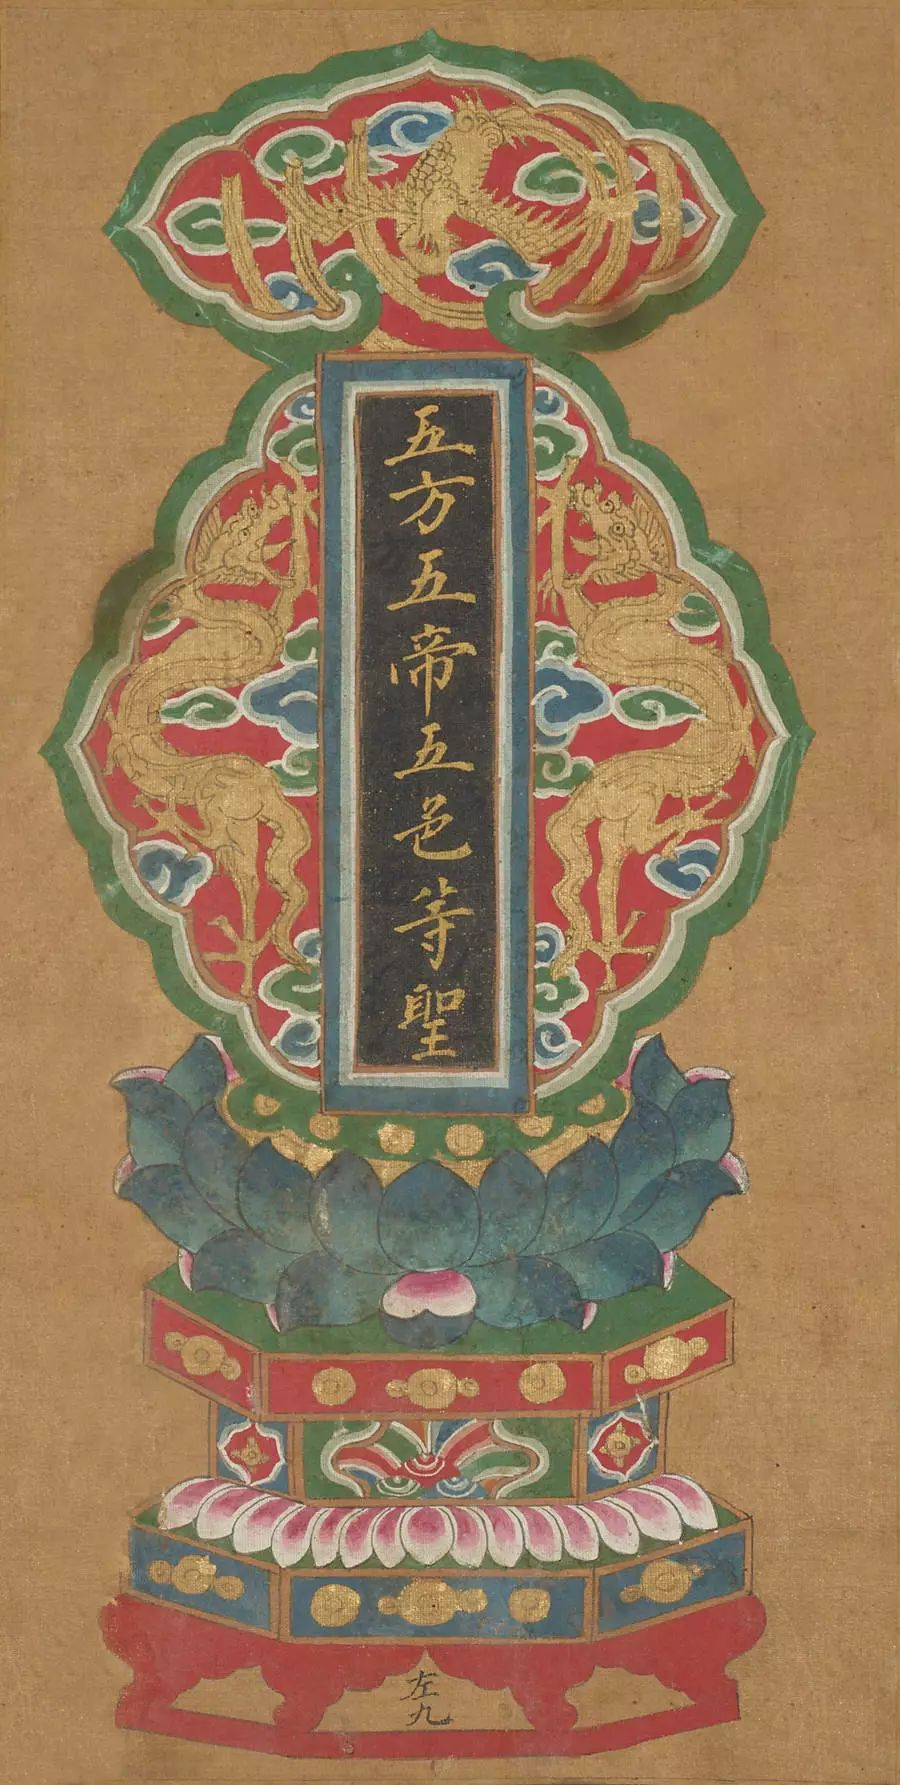 五方五帝五色等聖
左九